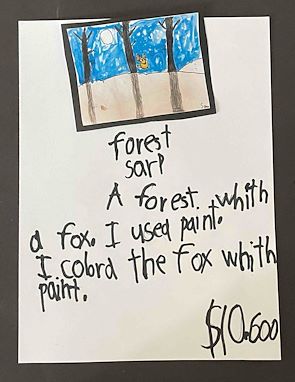 forest
sarp
A forest. whith
a fox. I used paint.
I cobrd the fox whith
paint.
$10.600